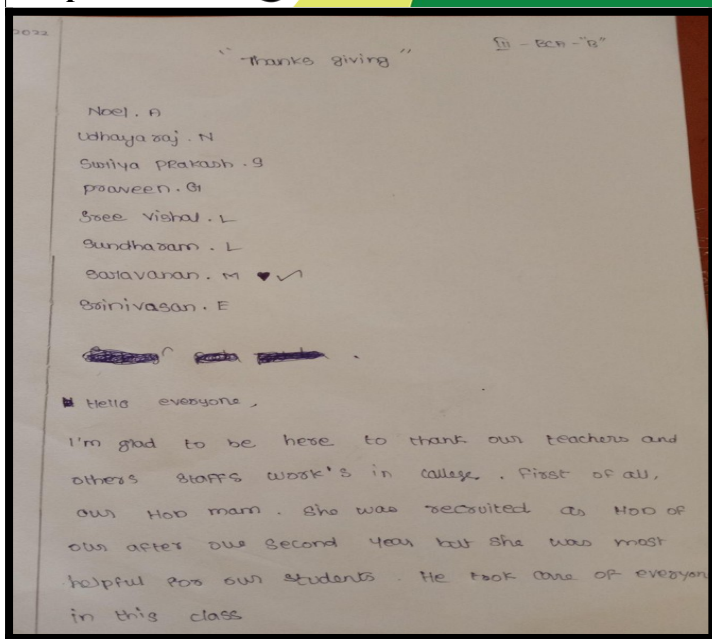 2022
"Thanks giving"
III - BCA - "B"
Noel. A
Udhayaraj. N
Suriya Prakash. g
Praveen. G
Sree vishal. L
Sundharam. L
Saravanan. M ♥ ✓
Srinivasan. E
Hello everyone,
I'm glad to be here to thank our teachers and
others staffs work's in college. First of all,
our HOD mam. She was recruited as HOD of
our after our second year but she was most
helpful for our students. He took care of everyon
in this class